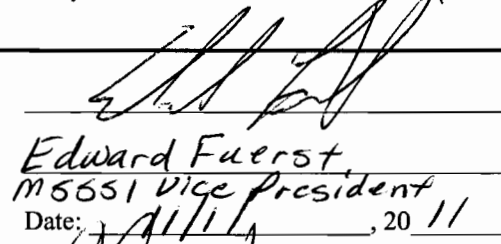 Edward Fuerst
MSSSI Vice President
Date: 1/1/11, 20 11